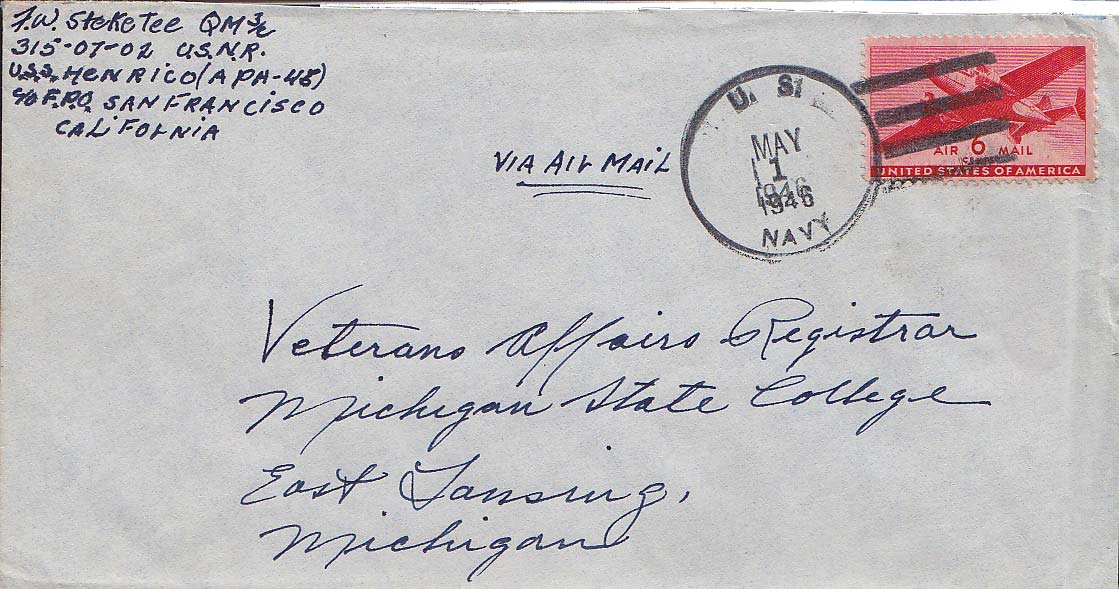 F.W. SteKeTee QM 3/c
315-07-02 U.S.N.R.
U.S.S. HENRICO (APA-45)
c/o F.P.O. SAN FRANCISCO
CALIFORNIA
VIA AIR MAIL
U. S.
MAY
1
1946
NAVY
AIR 6¢ MAIL
UNITED STATES OF AMERICA
Veterans Affairs Registrar
Michigan State College
East Lansing,
Michigan